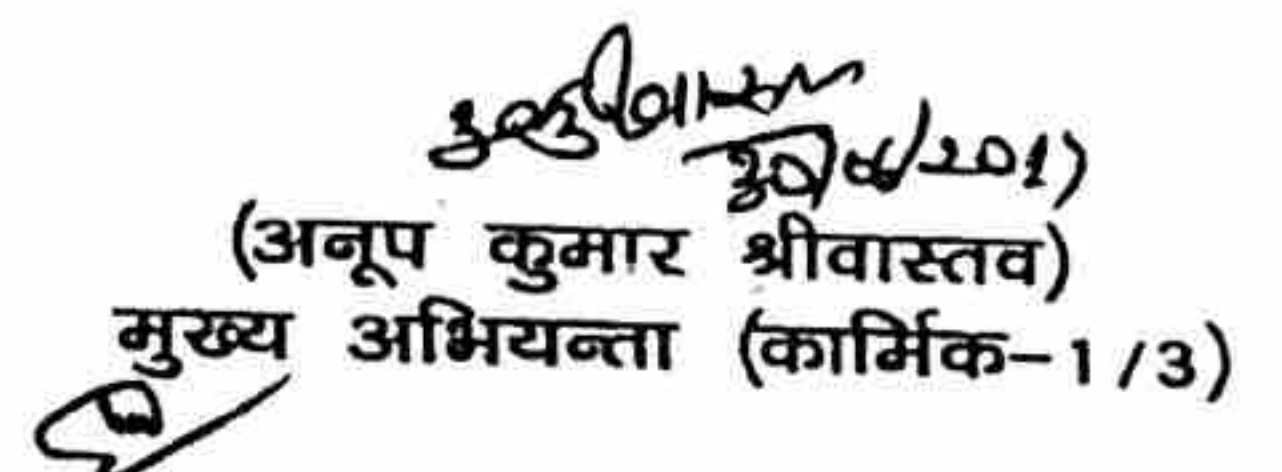 (अनूप कुमार श्रीवास्तव)
मुख्य अभियन्ता (कार्मिक-1/3)